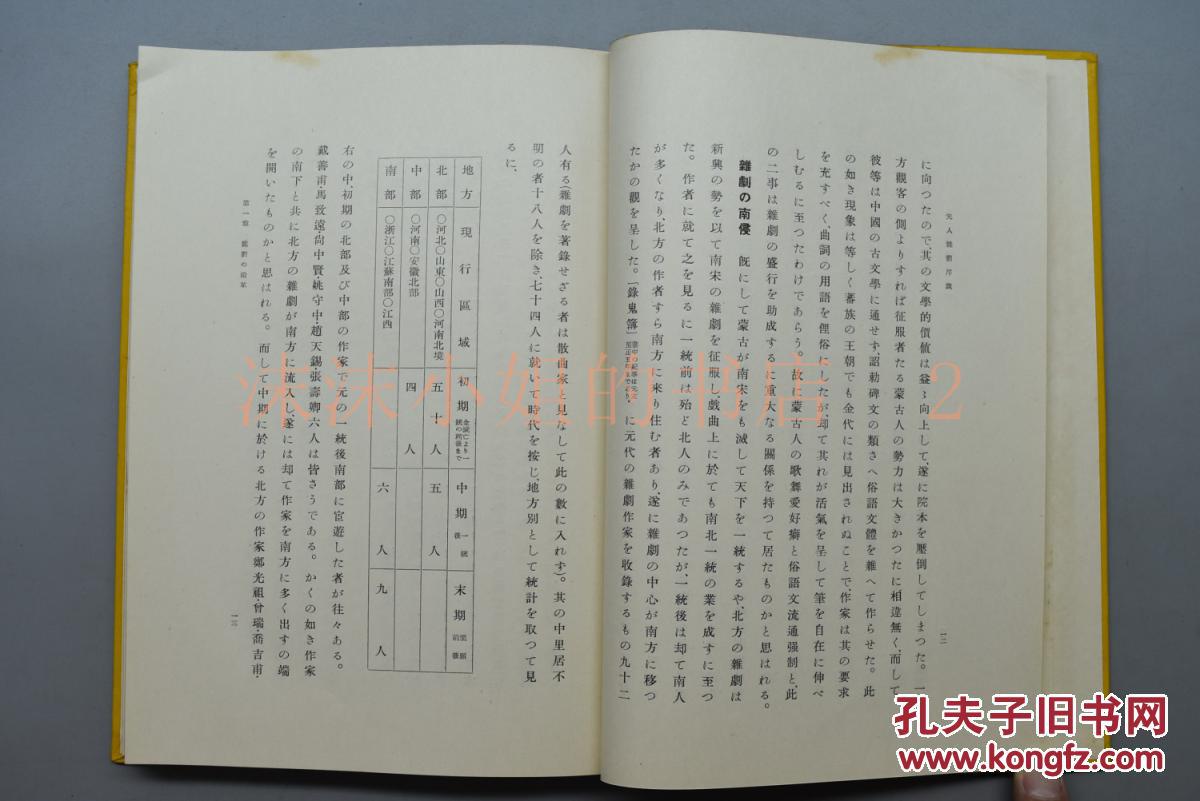 元人雜劇序說
一二
に向つたので、其の文學的價値は益〻向上して、遂に院本を壓倒してしまつた。一
方觀客の側よりすれば征服者たる蒙古人の勢力は大きかつたに相違無く、而して
彼等は中國の古文學に通せず、詔勅碑文の類さへ俗語文體を雜へて作らせた。此
の如き現象は等しく蕃族の王朝でも金代には見出されぬことで、作家は其の要求
を充すべく、曲詞の用語を俚俗にしたが、却て其れが活氣を呈して筆を自在に伸べ
しむるに至つたわけであらう。故に蒙古人の歌舞愛好癖と俗語文流通强制と、此
の二事は雜劇の盛行を助成するに重大なる關係を持つて居たものかと思はれる。
雜劇の南侵 既にして蒙古が南宋をも滅して天下を一統するや、北方の雜劇は
新興の勢を以て南宋の雜劇を征服し、戲曲上に於ても南北一統の業を成すに至つ
た。作者に就て之を見るに一統前は殆ど北人のみであつたが、一統後は却て南人
が多くなり、北方の作者すら南方に來り住む者あり、遂に雜劇の中心が南方に移つ
たかの觀を呈した。「錄鬼簿」に元代の雜劇作家を收錄するもの九十二
人有る(雜劇を著錄せざる者は散曲家と見なして此の數に入れず)。其の中里居不
明の者十八人を除き、七十四人に就いて時代を按じ、地方別として統計を取つて見
るに、
地方 現行區域 初期 金滅亡より一統の前後まで 中期 一統後 末期 至順前後
北部 〇河北〇山東〇山西〇河南北境 五十人 五人
中部 〇河南〇安徽北部 四人
南部 〇浙江〇江蘇南部〇江西 六人 九人
右の中、初期の北部及び中部の作家で元の一統後南部に宦遊した者が往々ある。
戴善甫・馬致遠・尙中賢・姚守中・趙天錫・張壽卿六人は皆さうである。かくの如き作家
の南下と共に北方の雜劇が南方に流入し、遂には却て作家を南方に多く出すの端
を開いたものかと思はれる。而して中期に於ける北方の作家鄭光祖・曾瑞・喬吉甫・
第一章 雜劇の沿革
一三
沫沫小姐的书店 2
孔夫子旧书网
www.kongfz.com